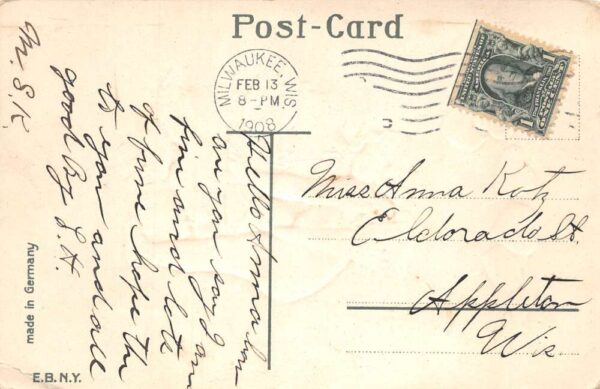 Post-Card
MILWAUKEE, WIS.
FEB 13
8-PM
1908
1
1
Miss Anna Kotz
Eldorado St.
Appleton
Wis
Hello Anna how
are you say I am
fine and lots
of fune hope the
to you and all
good by L. H.
M. S. K.
made in Germany
E.B.N.Y.